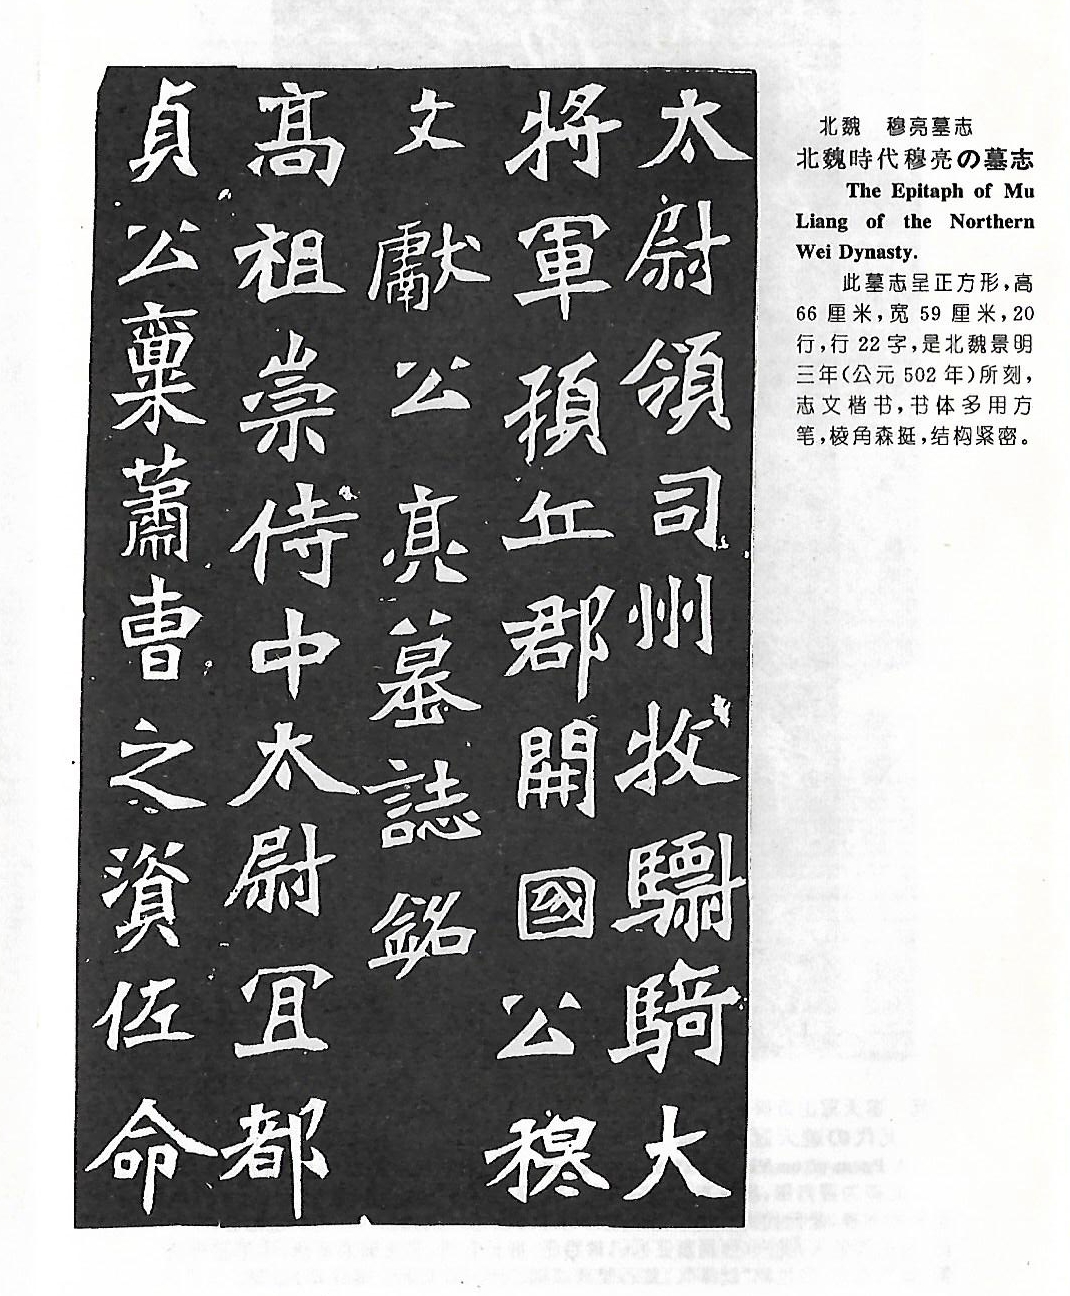 太尉領司州牧驃騎大
將軍頓丘郡開國公穆
文獻公亮墓誌銘
高祖崇侍中太尉宜都
貞公稟蕭曹之資佐命
北魏 穆亮墓志
北魏時代穆亮の墓志
The Epitaph of Mu
Liang of the Northern
Wei Dynasty.
此墓志呈正方形,高
66 厘米,宽 59 厘米,20
行,行 22 字,是北魏景明
三年(公元 502 年)所刻,
志文楷书,书体多用方
笔,棱角森挺,结构紧密。